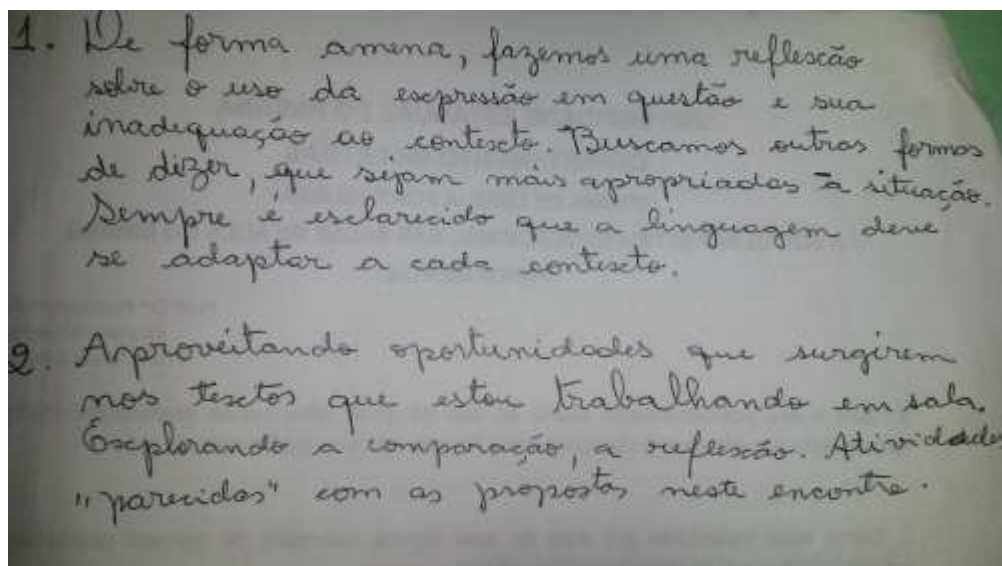 1. De forma amena, fazemos uma reflexão
sobre o uso da expressão em questão e sua
inadequação ao contexto. Buscamos outras formas
de dizer, que sejam mais apropriadas à situação.
Sempre é esclarecido que a linguagem deve
se adaptar a cada contexto.
2. Aproveitando oportunidades que surgirem
nos textos que estou trabalhando em sala.
Explorando a comparação, a reflexão. Atividades
"parecidas" com as propostas neste encontro.